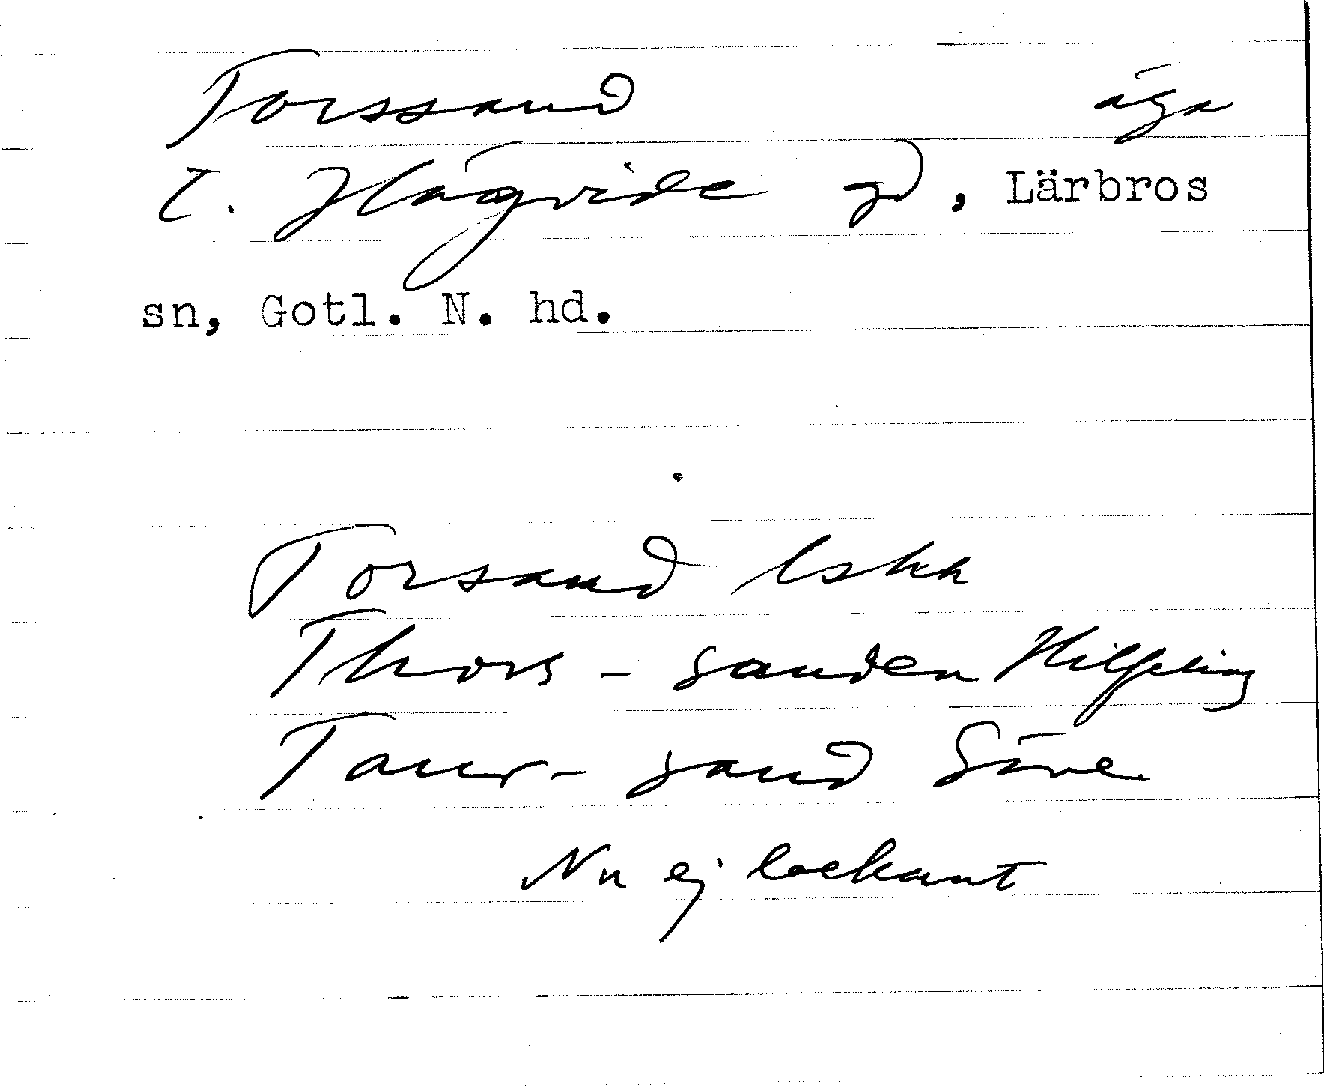 Torssand äga
t. Hägvide gd, Lärbros
sn, Gotl. N. hd.
Torsand Iskk
Thors-sanden Hilfeling
Taur-sand Säve
Nu ej bekant